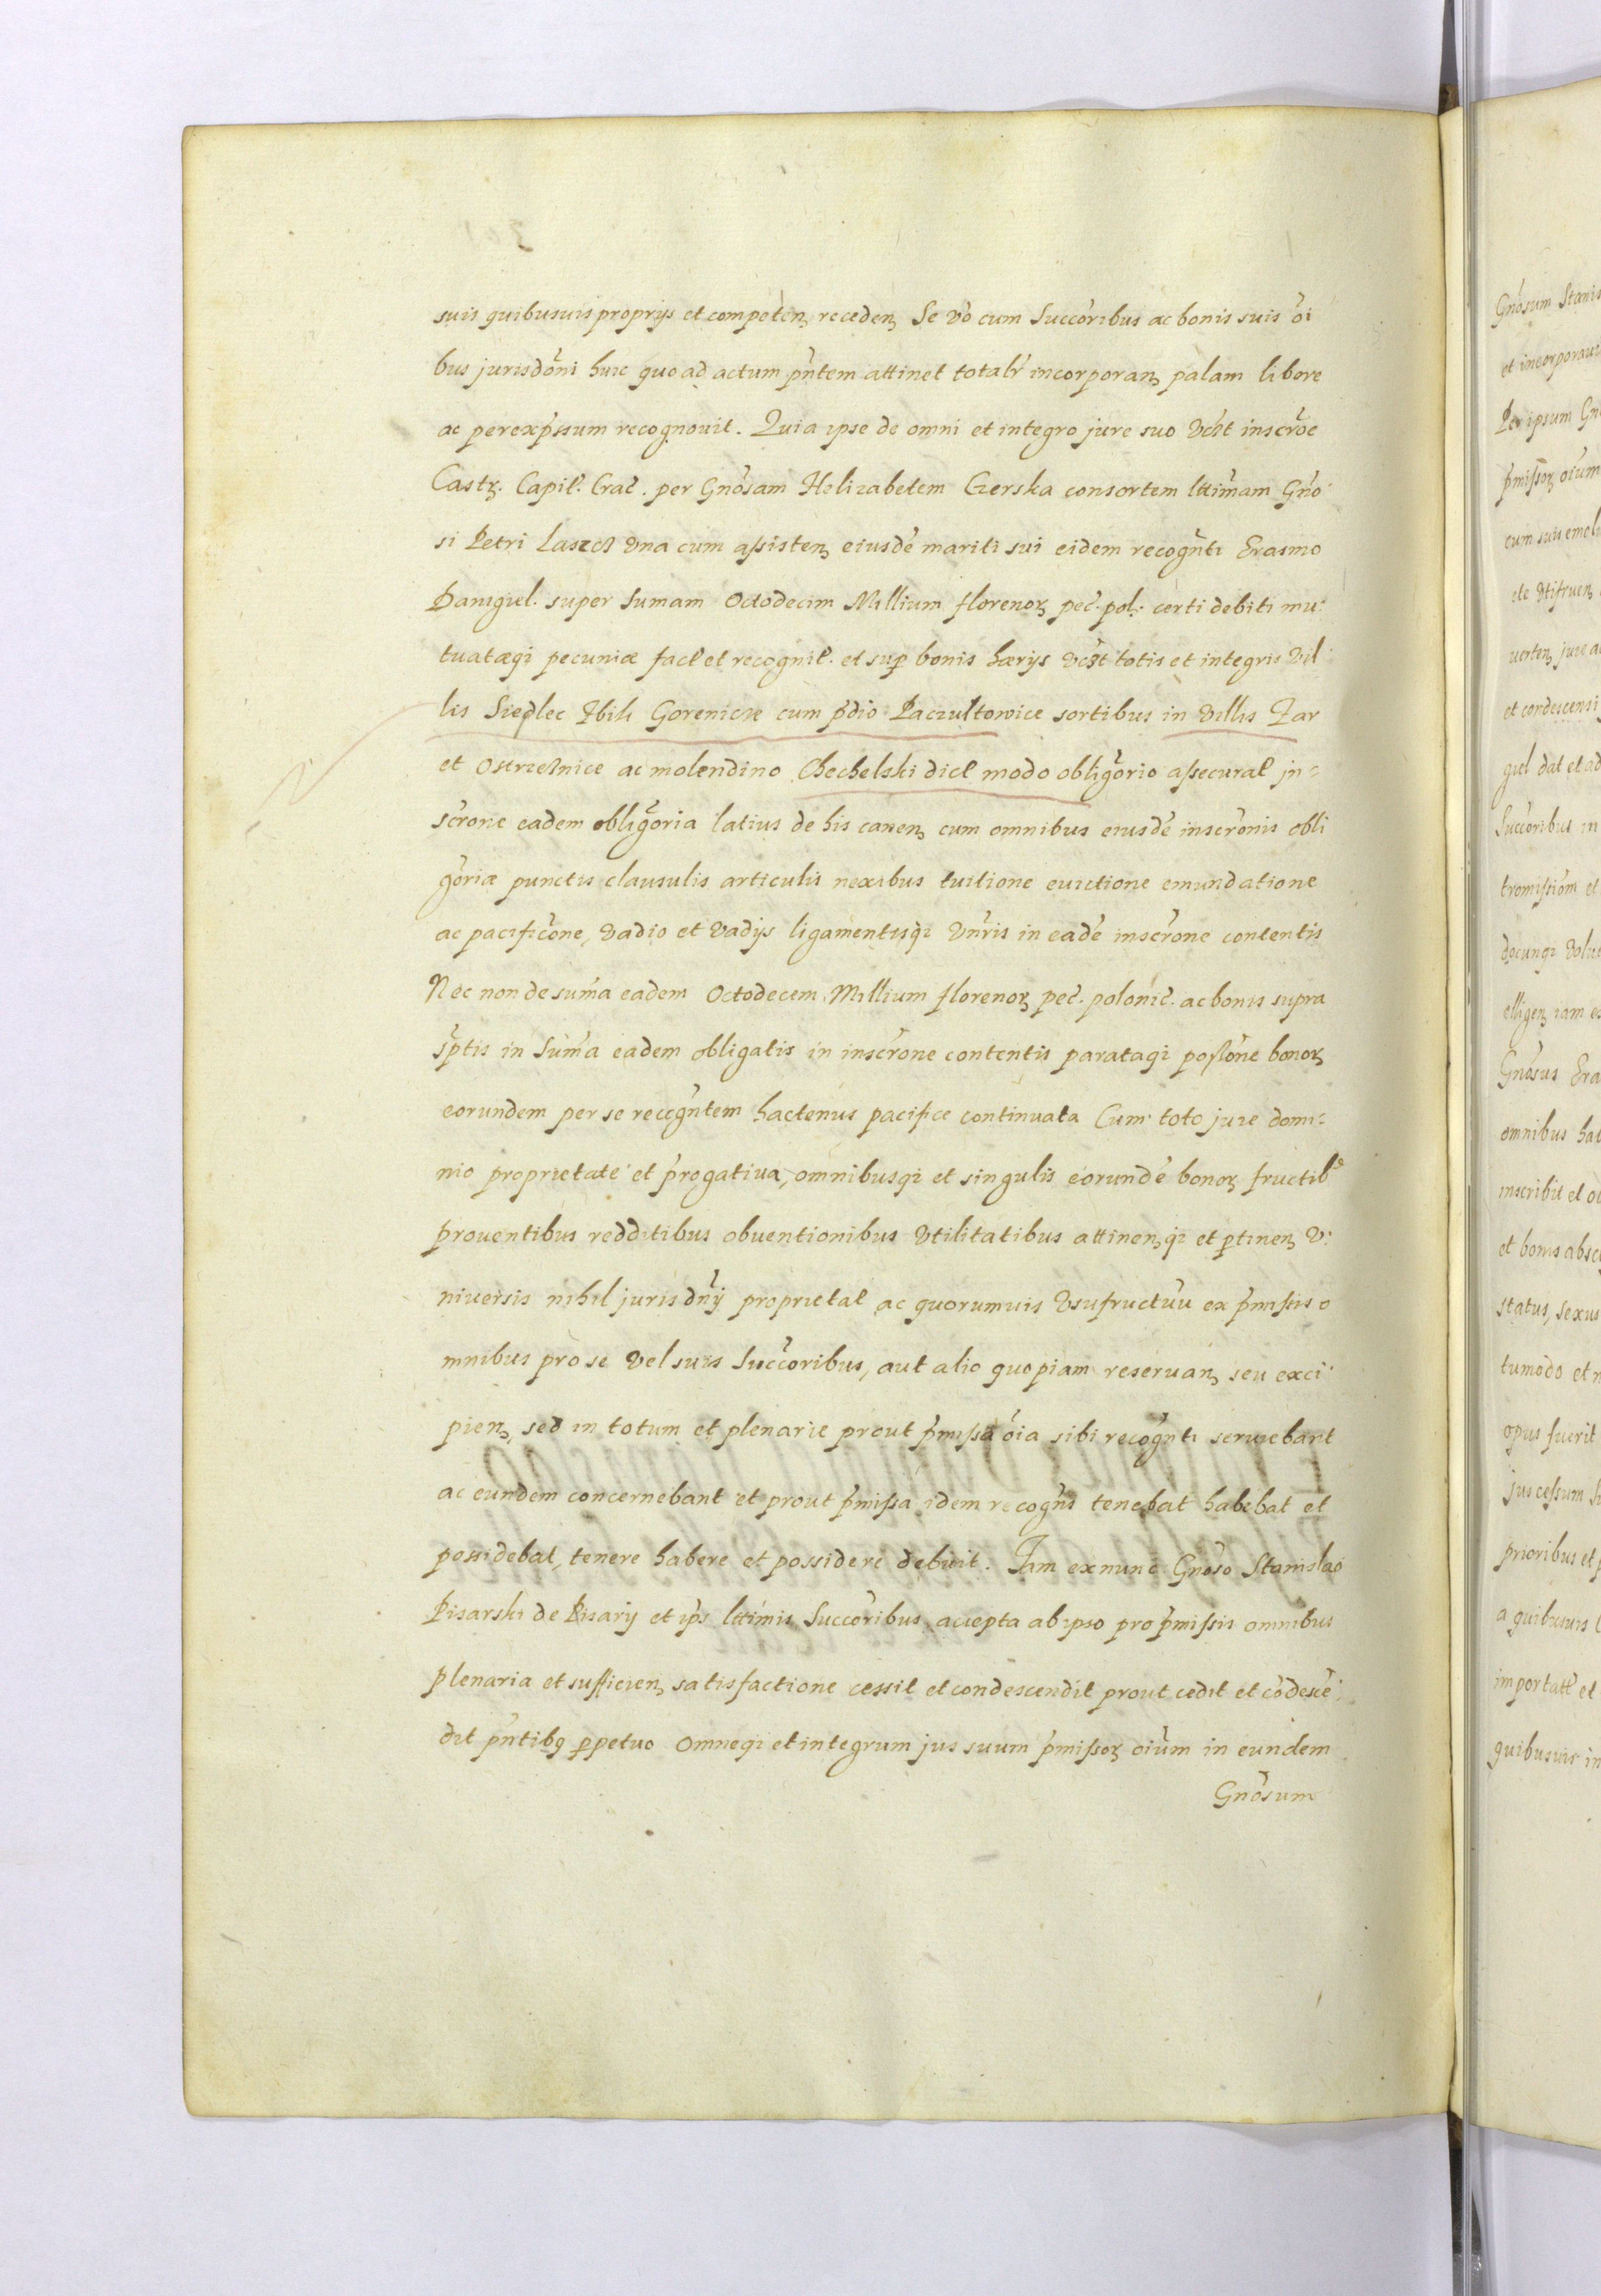 suis quibusuis proprys et competen̄ receden̄ Se vō cum Succōribus ac bonis suis ōi
bus jurisdōni huic quo ad actum pn̄tem attinet totalr̄ incorporan̄ palam libere
ac per exp̄ssum recognouit. Quia ipse de omni et integro jure suo vc̄t inscrōe
Castr̄. Capit̄. Crac̄. per Gnōsam Helizabetem Czerska consortem lttīmam Gnō
si Petri Laszcz vna cum assisten̄ eiusdē mariti sui eidem recogn̄ti Erasmo
Danigiel. super Sumam Octodecim Millium florenoꝝ pec̄. pol. certi debiti mu:
tuatæq₃ pecuniæ fact̄ et recognit̄. et sup̄ bonis hærys vc̄t totis et integris vil
lis Siedlec Zbik Gorenicze cum p̄dio Paczultowice sortibus in villis Zar
et Ostrzesnice ac molendino Chechelski dict̄ modo obligōrio assecurat̄ in=
scrōne eadem obligōria latius de his canen̄ cum omnibus eiusdē inscrōnis obli
gōriæ punctis clausulis articulis nexibus tuitione euictione emundatione
ac pacificōne, vadio et vadys ligamentisq₃ vn̄ris in eadē inscrōne contentis
Nec non de sum̄a eadem Octodecem Millium florenoꝝ pec̄. polonic̄. ac bonis supra
sp̄tis in Sum̄a eadem obligatis in inscrōne contentis parataq₃ possōne bonoꝝ
eorundem per se recogn̄tem hactenus pacifice continuata Cum toto jure domi=
nio proprietate et p̄rogatiua, omnibusq₃ et singulis eorundē bonoꝝ fructibꝰ
prouentibus redditibus obuentionibus vtilitatibus attinen̄q₃ et ꝑtinen̄ v:
niuersis nihil juris dn̄ij proprietat̄ ac quorumuis vsufructūu ex p̄missis o
mnibus pro se vel suis Succōribus, aut alio quopiam reseruan̄ seu exci
pien̄, sed in totum et plenarie prout p̄missa ōia sibi recogn̄ti seruiebant
ac eundem concernebant et prout p̄missa idem recogn̄s tenebat habebat et
possidebat, tenere habere et possidere debuit. Iam ex nunc Gnōso Stanislao
Pisarski de Pisary et ip̄s lttīmis Succōribus accepta ab ipso pro p̄missis omnibus
plenaria et sufficien̄ satisfactione cessit et condescendit prout cedit et cōdescē
dit pn̄tibꝰ ꝑpetuo omneq₃ et integrum jus suum p̄missoꝝ oiūm in eundem
Gnōsum
Gnōsum Stanis
et incorporaui
Per ipsum Gn
p̄missoꝝ oiūm
cum suis emol
et condescensi
giel dat et ad
Succōribus in
tromissiōm et
Gnōsus Era
omnibus ha
inscribit et
et bonis absc
status, sexus
tumodo et
opus fuerit
jus cessum
prioribus et
a quibusuis
importatt̄ et
quibusuis in